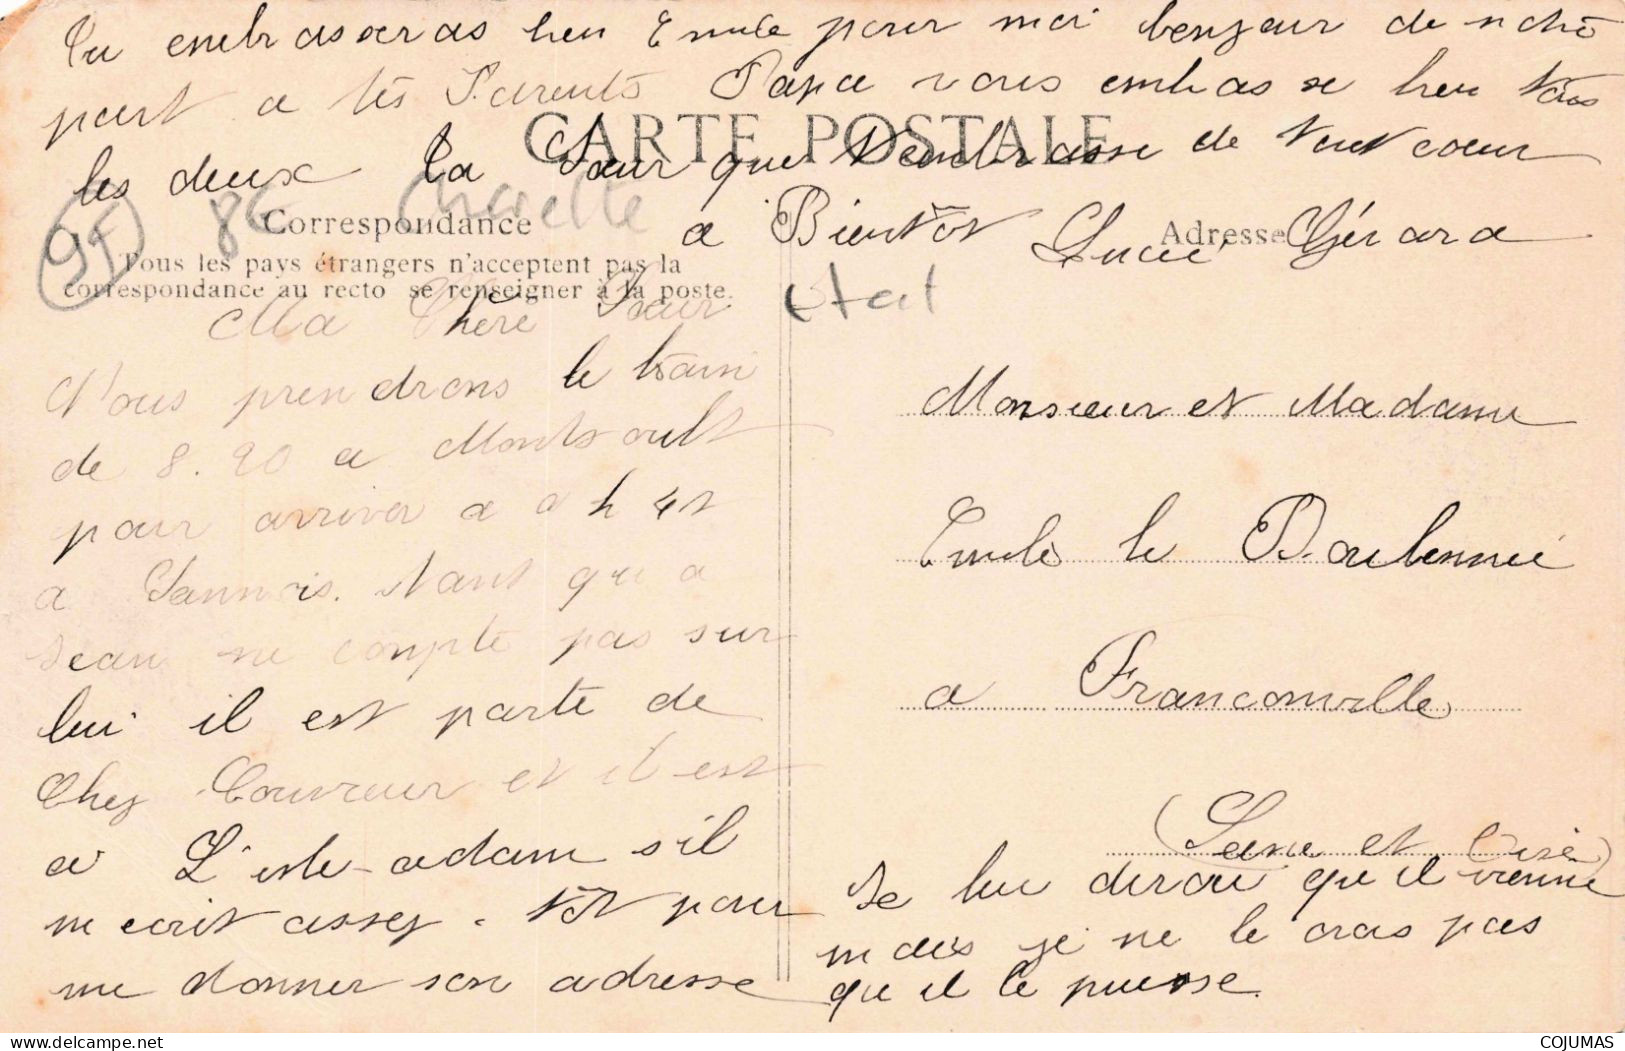 Tu embrasseras bien Emile pour moi bonjour de notre
part a tes Parents Papa vous embrasse bien tous
les deux Ta Sœur que t'embrasse de tout cœur
a Bientôt Lucie Gérard
CARTE POSTALE
Correspondance
Adresse
Tous les pays étrangers n'acceptent pas la
correspondance au recto se renseigner à la poste.
95
8€
Charette
état
Ma Chère Sœur
Nous prendrons le train
de 8.20 a Montsoult
pour arriver a 9 h 45
a Sannois. tant qu'a
Jean ne compte pas sur
lui il est parti de
Chez Couvreur et il est
a L'isle-adam s'il
m ecrit assez tôt pour
me donner son adresse
Je lui dirai qu'il vienne
mais je ne le crois pas
qu il le puisse.
Monsieur et Madame
Emile le
a Franconville
(Seine et Oise)
COJUMAS